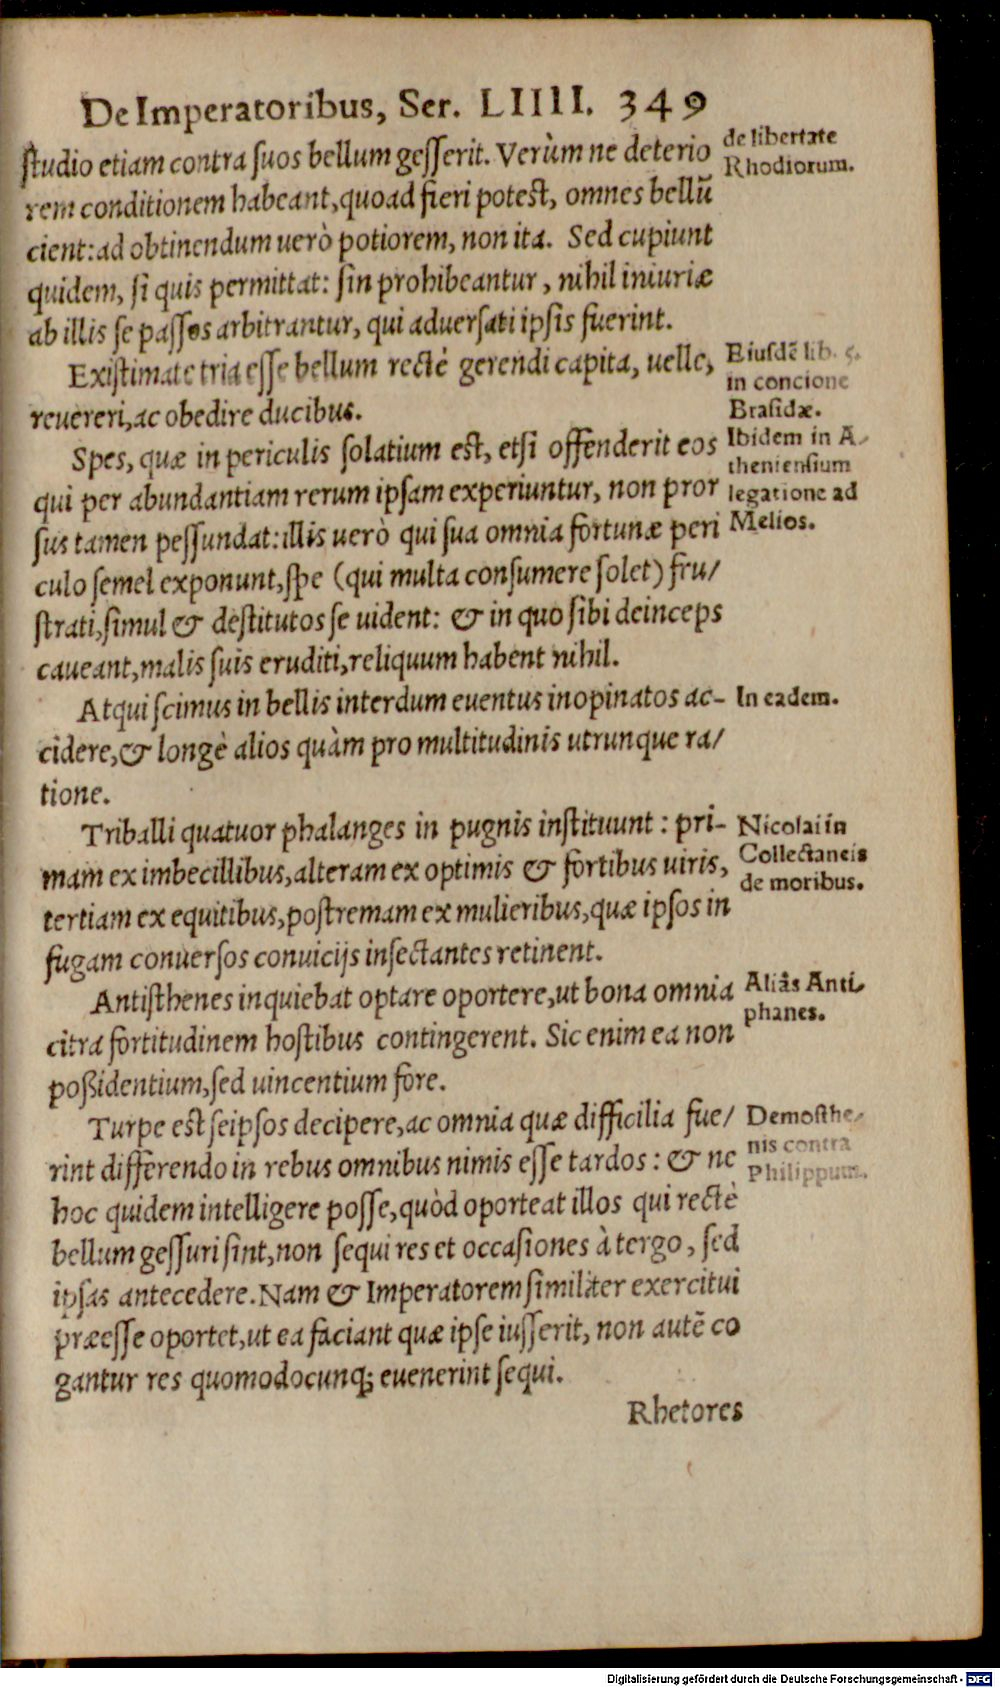 De Imperatoribus, Ser. LIIII. 349
studio etiam contra suos bellum gesserit. Verùm ne deterio
rem conditionem habeant, quoad fieri potest, omnes bellũ
cient: ad obtinendum uerò potiorem, non ita. Sed cupiunt
quidem, si quis permittat: sin prohibeantur, nihil iniuriæ
ab illis se passos arbitrantur, qui aduersati ipsis fuerint.
de libertate
Rhodiorum.
Existimate tria esse bellum rectè gerendi capita, uelle,
reuereri, ac obedire ducibus.
Eiusdẽ lib. 5.
in concione
Brasidæ.
Spes, quæ in periculis solatium est, etsi offenderit eos
qui per abundantiam rerum ipsam experiuntur, non pror
sus tamen pessundat: illis uerò qui sua omnia fortunæ peri
culo semel exponunt, spe (qui multa consumere solet) fru/
strati, simul & destitutos se uident: & in quo sibi deinceps
caueant, malis suis eruditi, reliquum habent nihil.
Ibidem in A/
theniensium
legatione ad
Melios.
Atqui scimus in bellis interdum euentus inopinatos ac-
cidere, & longè alios quàm pro multitudinis utrunque ra/
tione.
In eadem.
Triballi quatuor phalanges in pugnis instituunt: pri-
mam ex imbecillibus, alteram ex optimis & fortibus uiris,
tertiam ex equitibus, postremam ex mulieribus, quæ ipsos in
fugam conuersos conuicijs insectantes retinent.
Nicolai in
Collectaneis
de moribus.
Antisthenes inquiebat optare oportere, ut bona omnia
citra fortitudinem hostibus contingerent. Sic enim ea non
poßidentium, sed uincentium fore.
Aliâs Anti/
phanes.
Turpe est seipsos decipere, ac omnia quæ difficilia fue/
rint differendo in rebus omnibus nimis esse tardos: & ne
hoc quidem intelligere posse, quòd oporteat illos qui rectè
bellum gessuri sint, non sequi res et occasiones à tergo, sed
ipsas antecedere. Nam & Imperatorem similiter exercitui
præesse oportet, ut ea faciant quæ ipse iusserit, non autẽ co
gantur res quomodocunq; euenerint sequi.
Demosthe/
nis contra
Philippum.
Rhetores
Digitalisierung gefördert durch die Deutsche Forschungsgemeinschaft - DFG